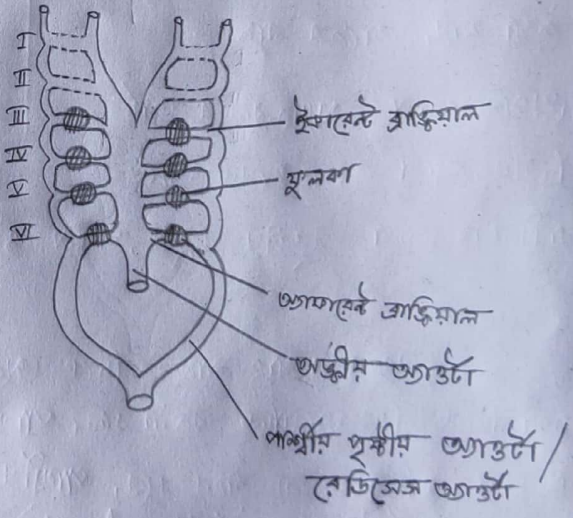 I
II
III
IV
V
VI
ইফারেন্ট ব্রাঙ্কিয়াল
ফুলকা
অ্যাফারেন্ট ব্রাঙ্কিয়াল
অঙ্কীয় অ্যাওর্টা
পার্শ্বীয় পৃষ্ঠীয় অ্যাওর্টা /
রেডিসেস অ্যাওর্টা